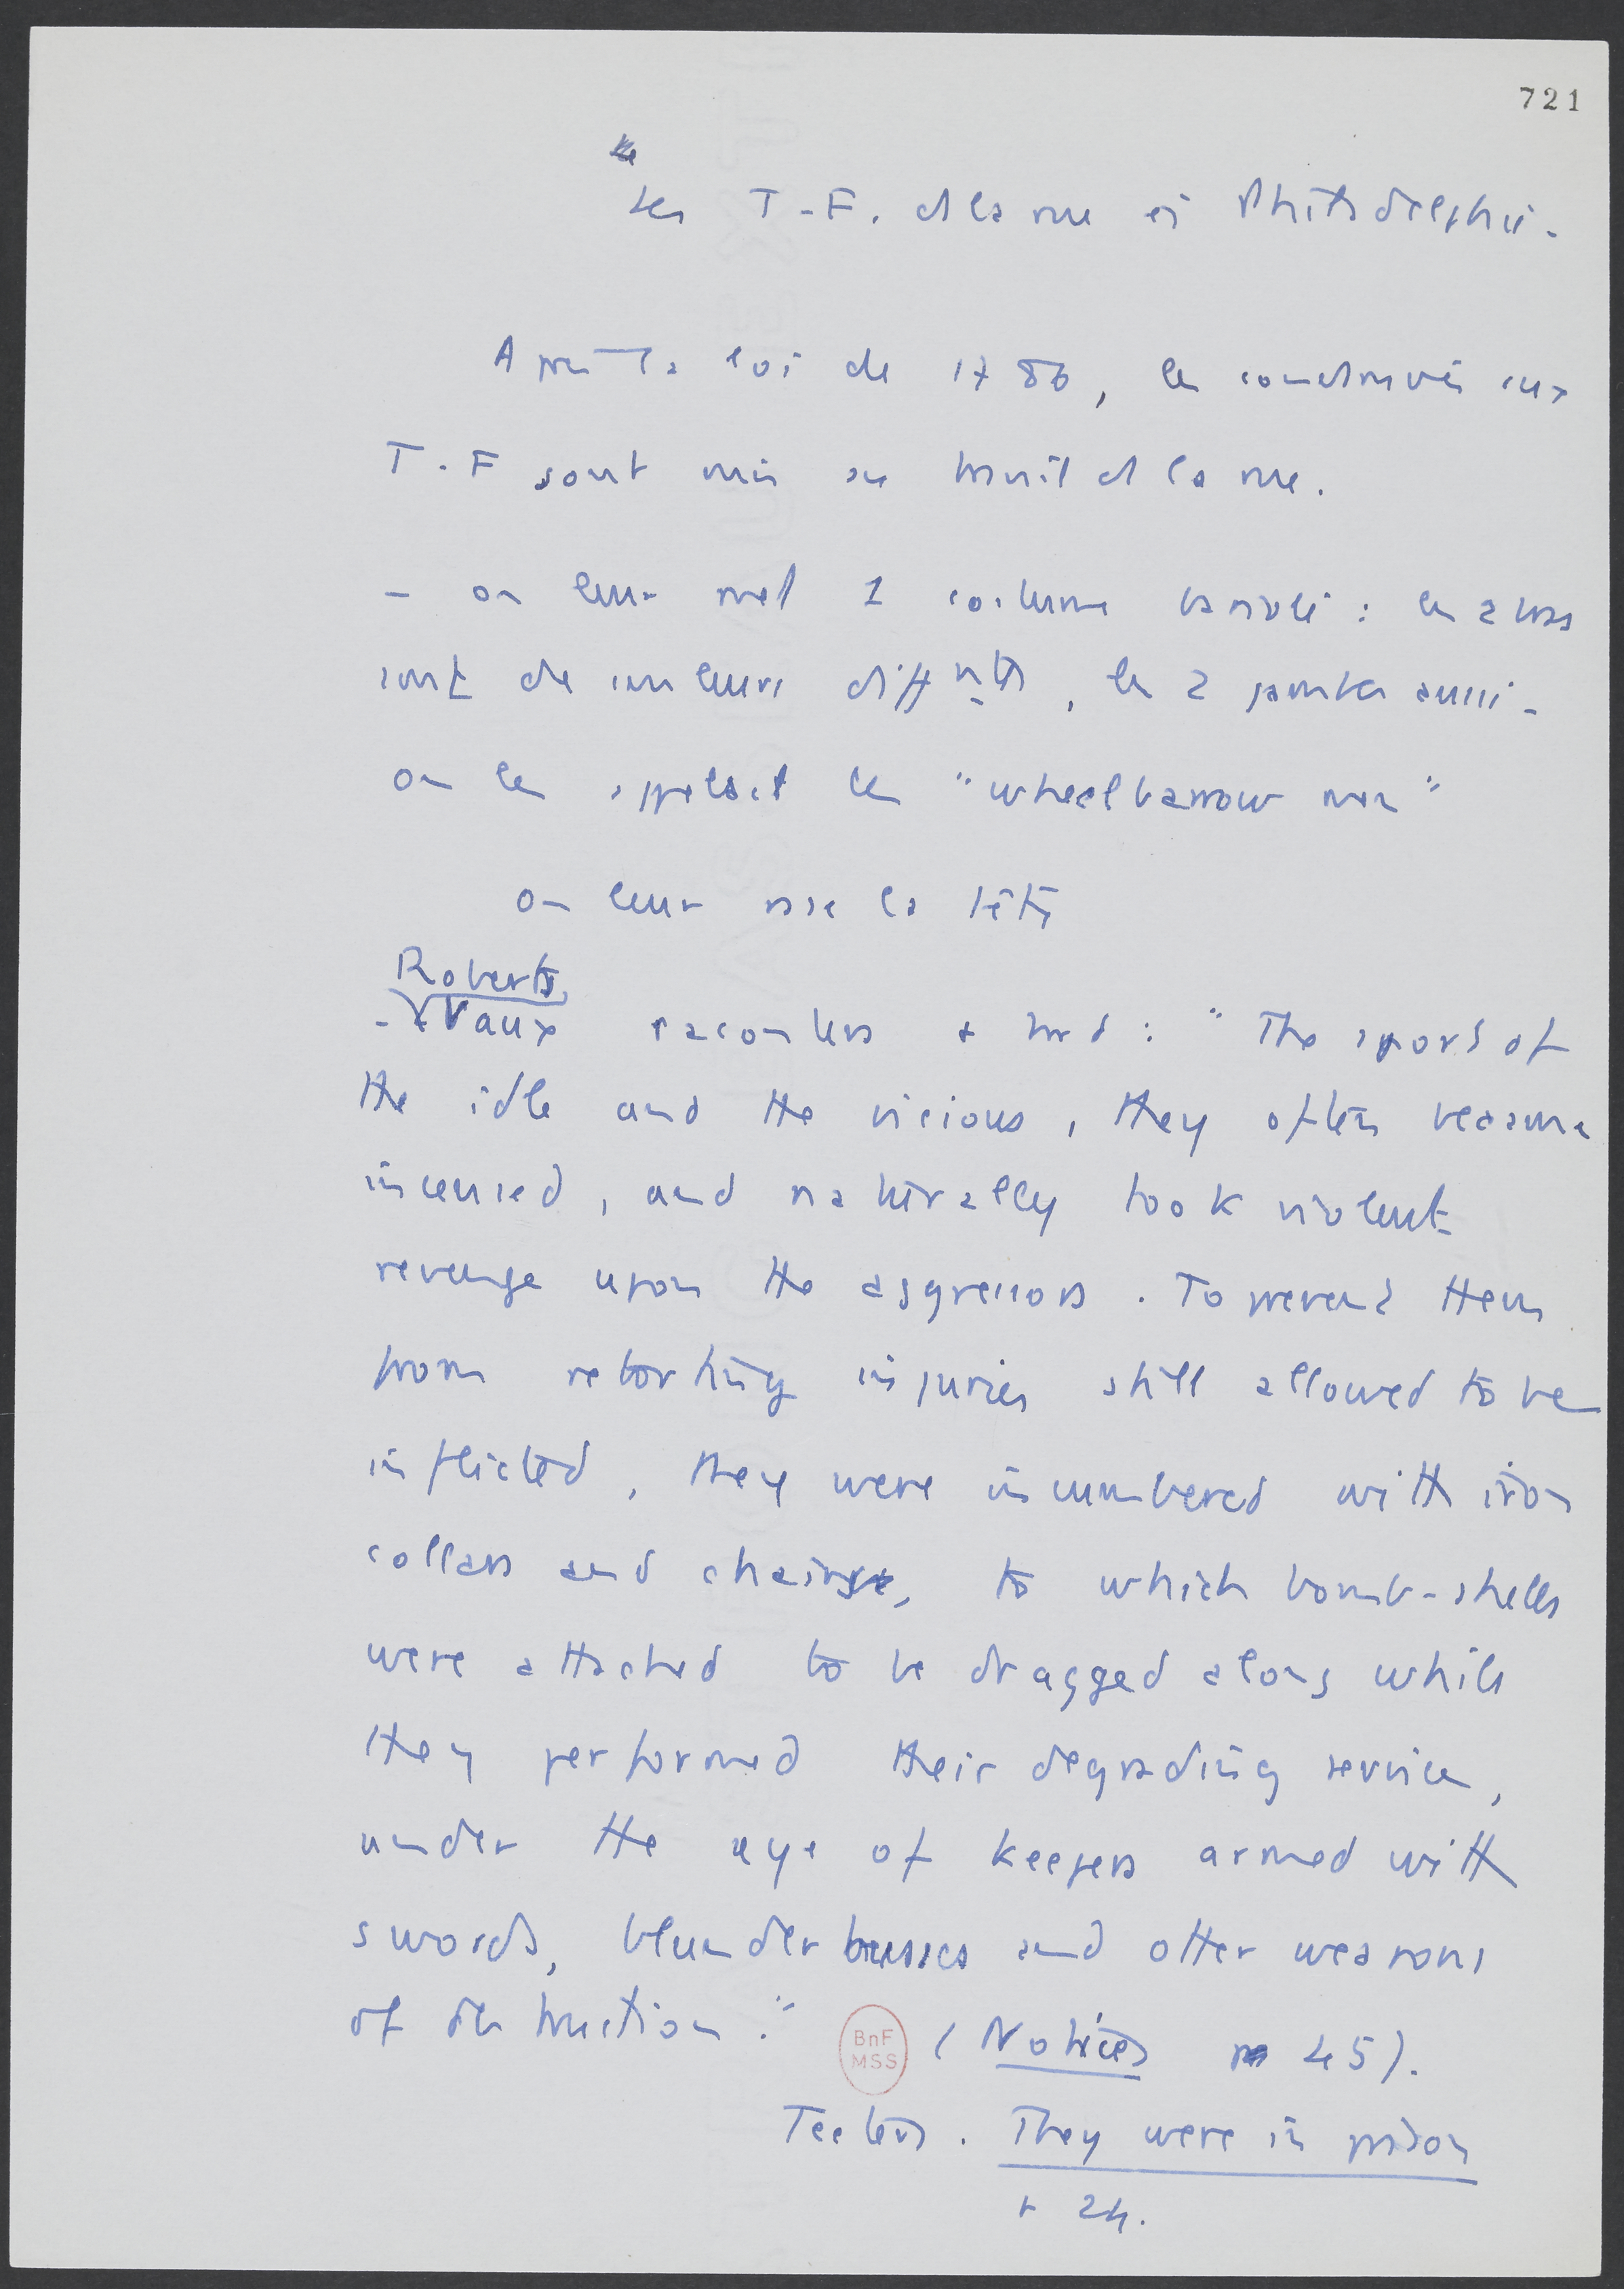 721
Les T-F. ds la rue à Philadelphie.
Après la loi de 1786, les condamnés aux
T.F sont mis au travail ds la rue.
- on leur met 1 costume bariolé : les 2 bras
sont de couleurs diff nts, les 2 jambes aussi.
on les appelait les "wheelbarrow men"
on leur rase la tête
Roberts
- Vaux racontera + tard : "The sport of
the idle and the vicious, they often became
incensed, and naturally took violent
revenge upon the aggressors. To prevent them
from retorting injuries still allowed to be
inflicted, they were incumbered with iron
collars and chains, to which bomb-shells
were attached to be dragged along while
they performed their degrading service,
under the eye of keepers armed with
swords, blunderbusses and other weapons
of destruction." (Notices p 45).
BnF
MSS
Teeters. They were in prison
p 24.